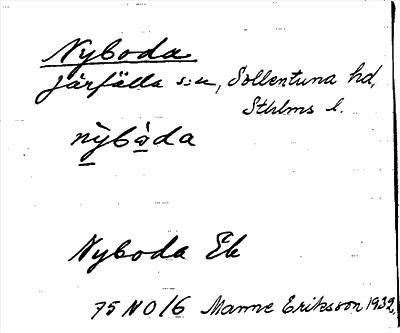 Nyboda
Järfälla s:n, Sollentuna hd,
Sthlms l.
nỳbòda
Nyboda Ek
75 NO/6 Manne Eriksson 1932.